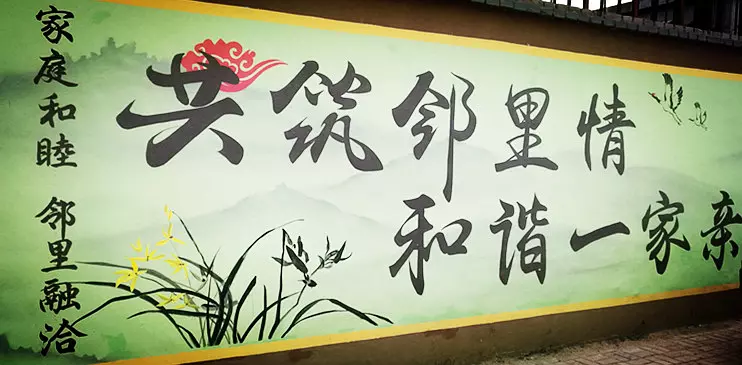 家庭和睦 邻里融洽
共筑邻里情
和谐一家亲